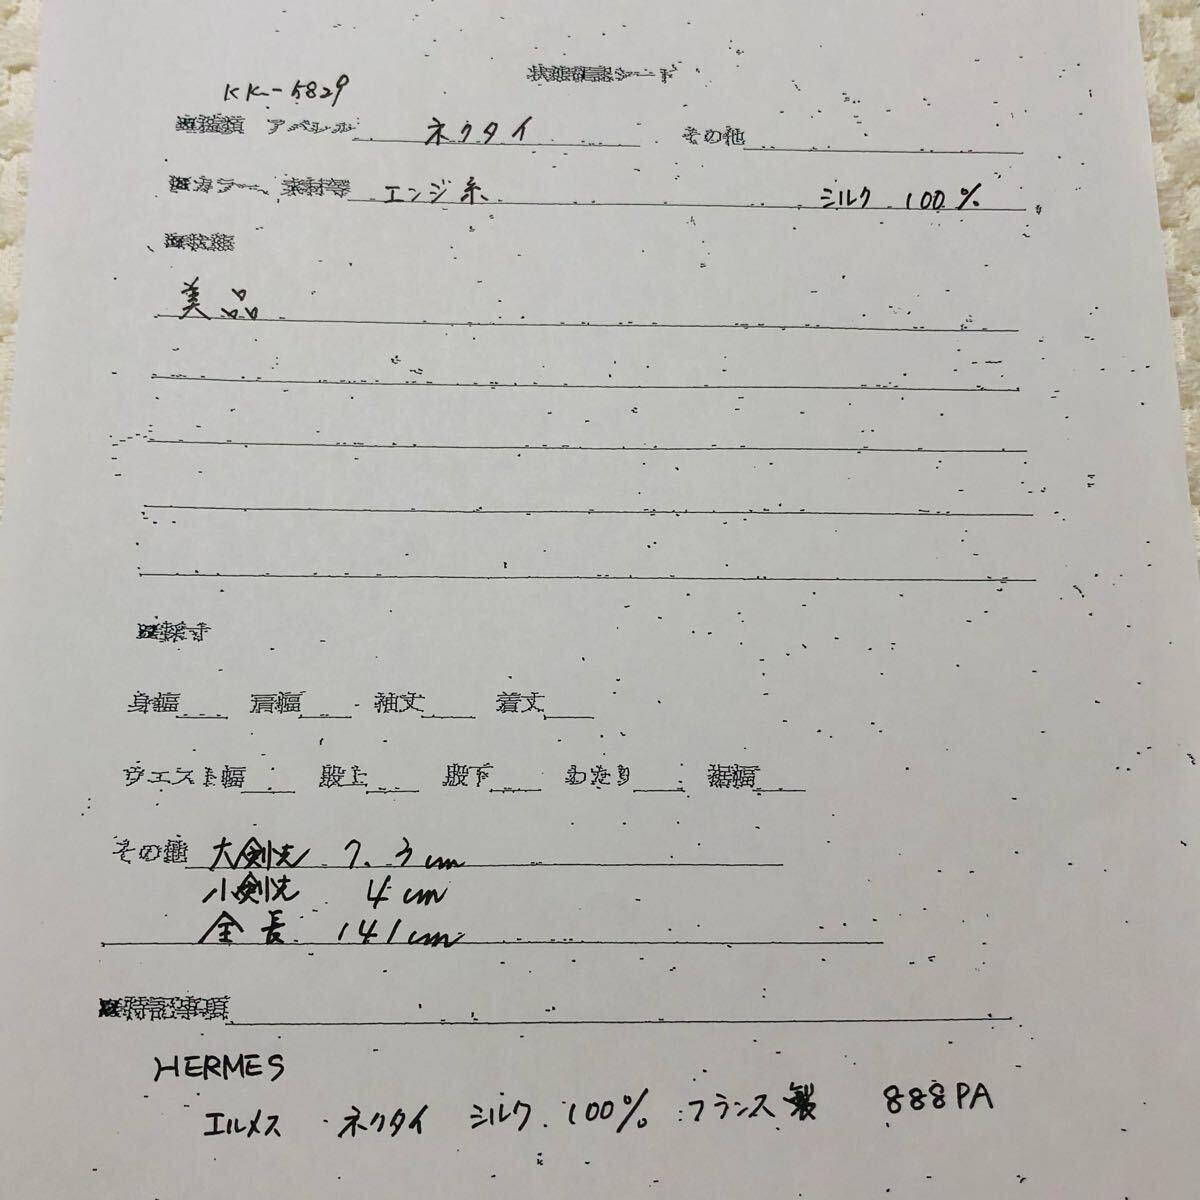 状態確認シート
KK-5829
種類 アパレル ネクタイ その他
カラー、素材等 エンジ系 シルク 100%
状態
美品
採寸
身幅 肩幅 袖丈 着丈
ウエスト幅 股上 股下 わたり 裾幅
その他 大剣先 7.3cm
小剣先 4cm
全長 141cm
特記事項
HERMES
エルメス ネクタイ シルク 100% フランス製 888PA